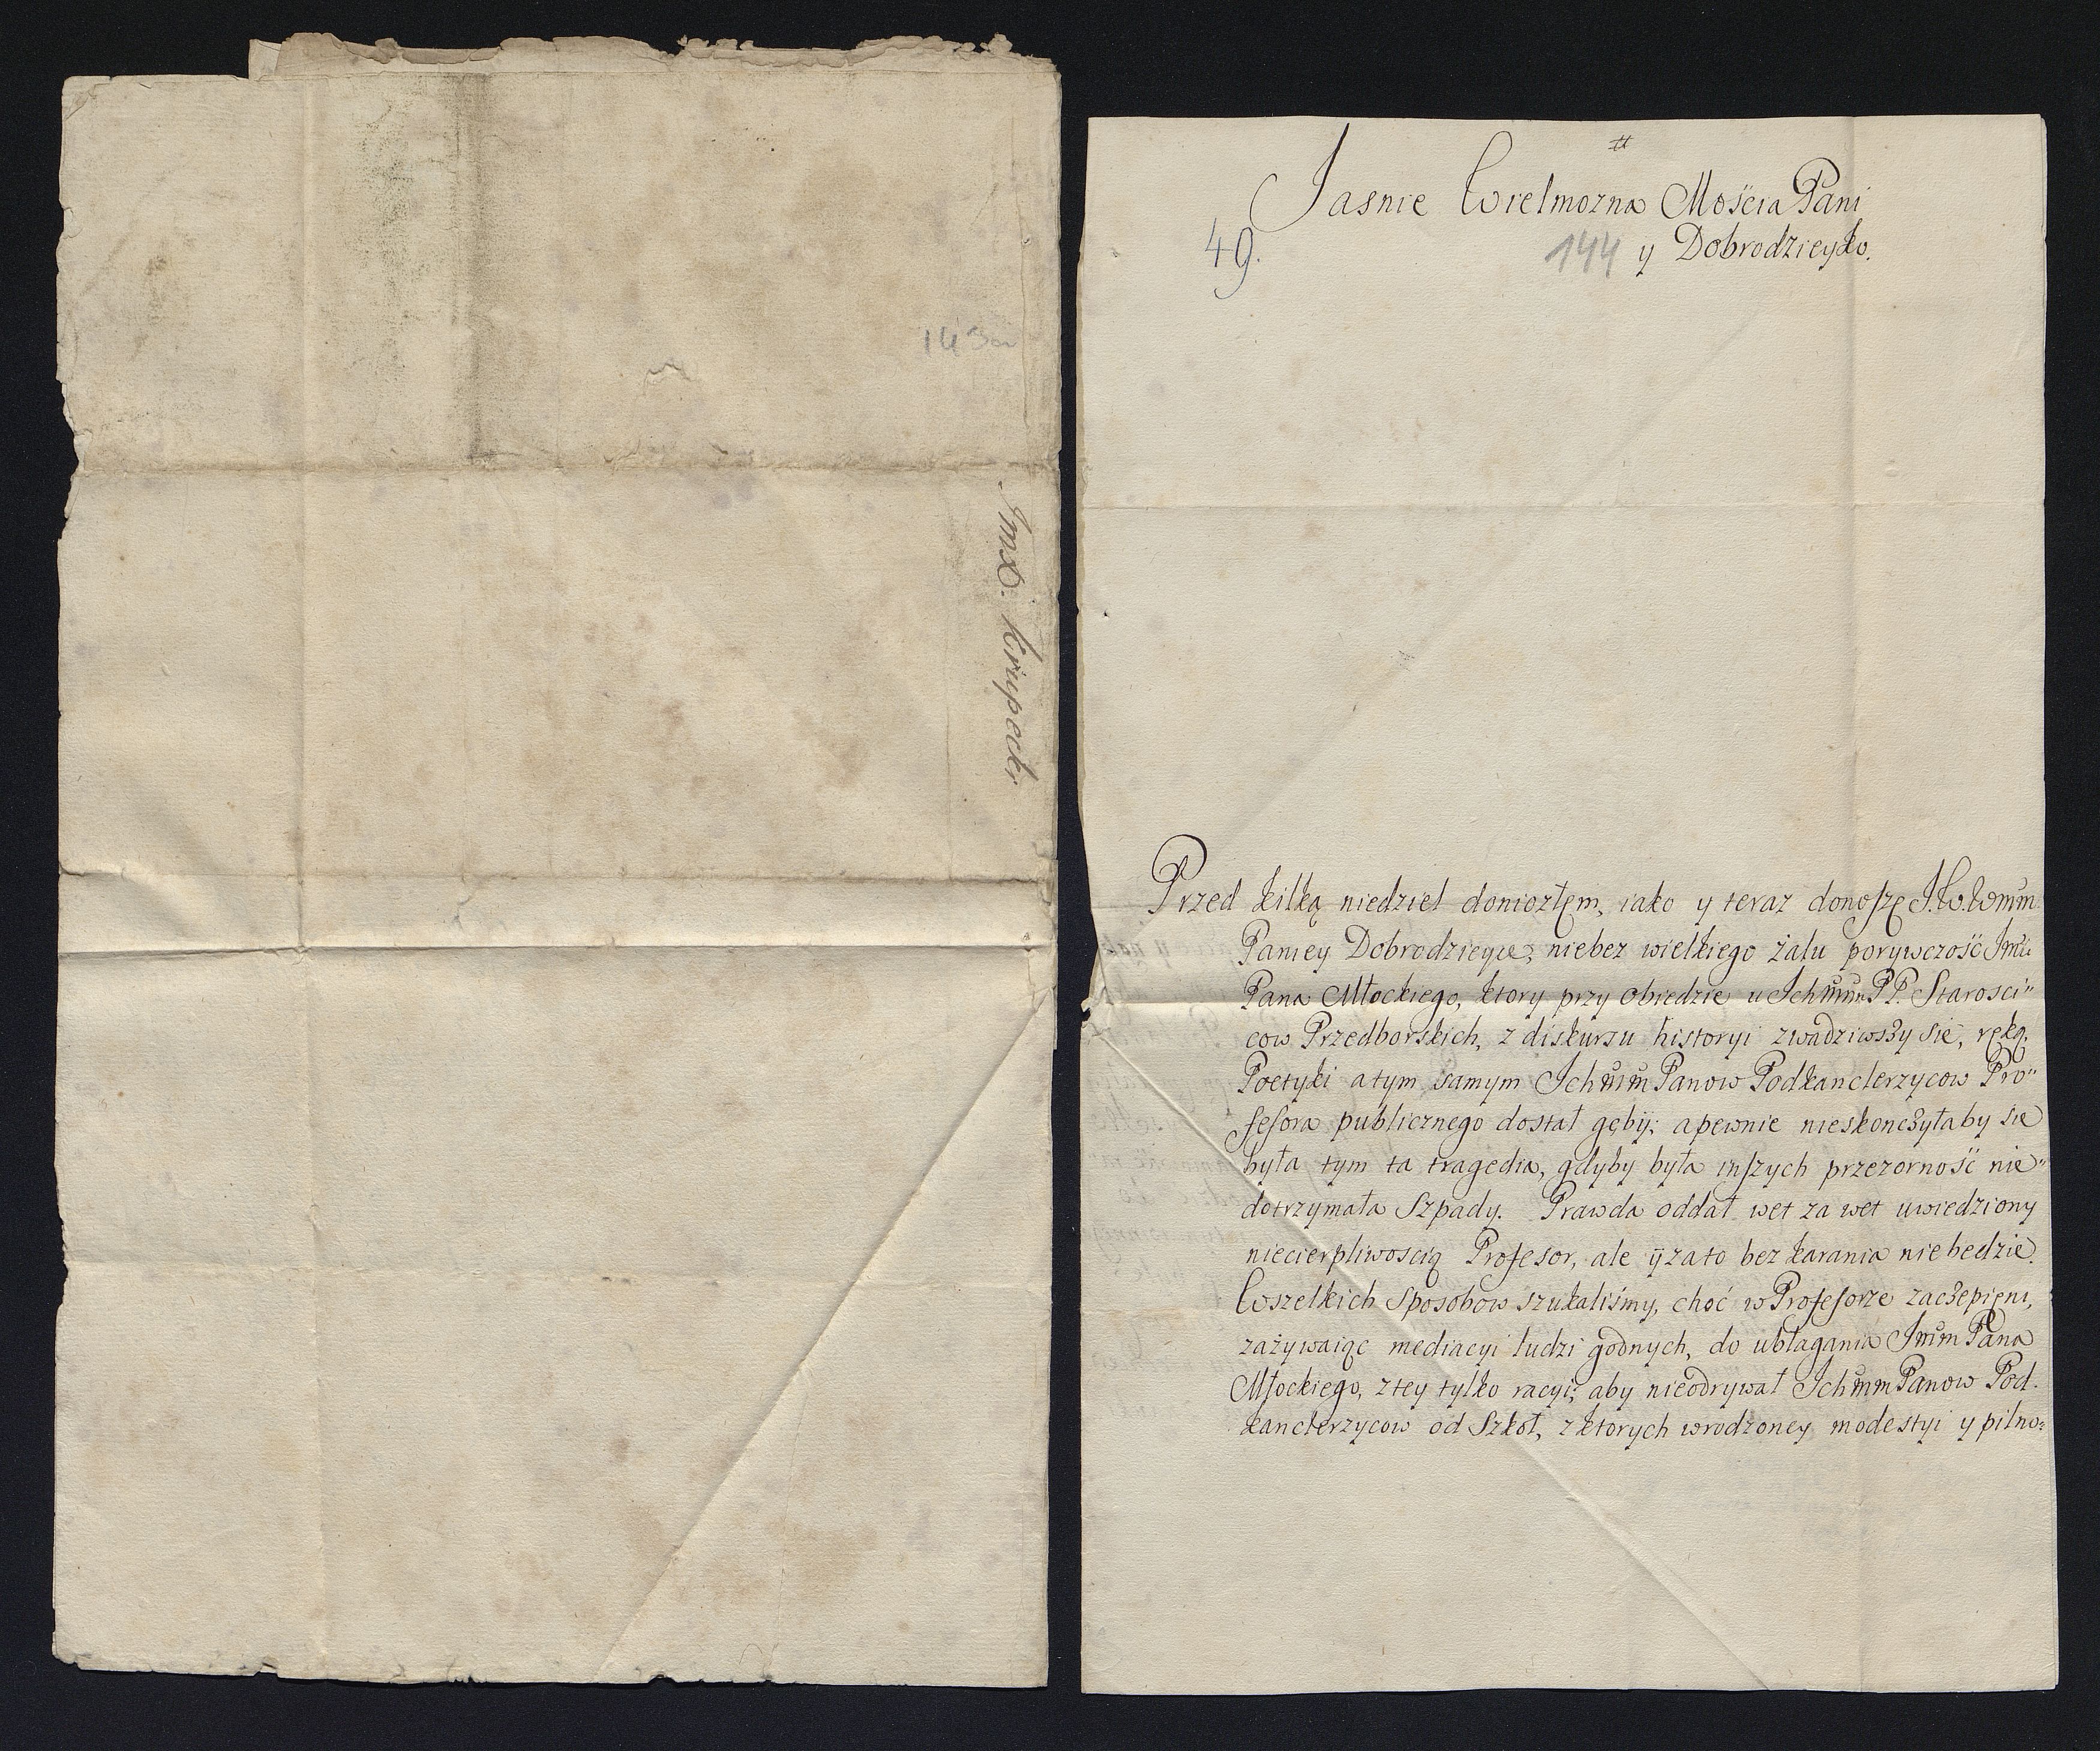 143a
Jmx. Krupecki
#
Jasnie Wielmozna Mościa Pani
49.
144
y Dobrodzieyko.
Przed kilką niedziel doniozłem, iako y teraz donoszę J.W.Wmm
Paniey Dobrodzieyce, niebez wielkiego żalu porywczość Jmci
Pana Młockiego, ktory przy obiedzie u Ichmm PP. Starosci"
cow Przedborskich, z diskursu historyi zwadziwszy sie, ręką
Poetyki atym samym Ichmm Panow Podkanclerzycow Pro"
fesora publicznego dostał gęby; apewnie nieskonczyłaby sie
była tym ta tragedia, gdyby była inszych przezorność nie"
dotrzymała Szpady. Prawda oddał wet za wet uwiedziony
niecierpliwoscią Profesor, ale y zato bez karania niebedzie.
Wszelkich Sposobow szukaliśmy, choć w Profesorze zaczepieni,
zażywaiąc mediacyi ludzi godnych, do ubłagania Jmm Pana
Młockiego, ztey tylko racyi; aby nieodrywał Ichmm Panow Pod.
kanclerzycow od Szkoł, z ktorych wrodzoney modestyi y pilno=